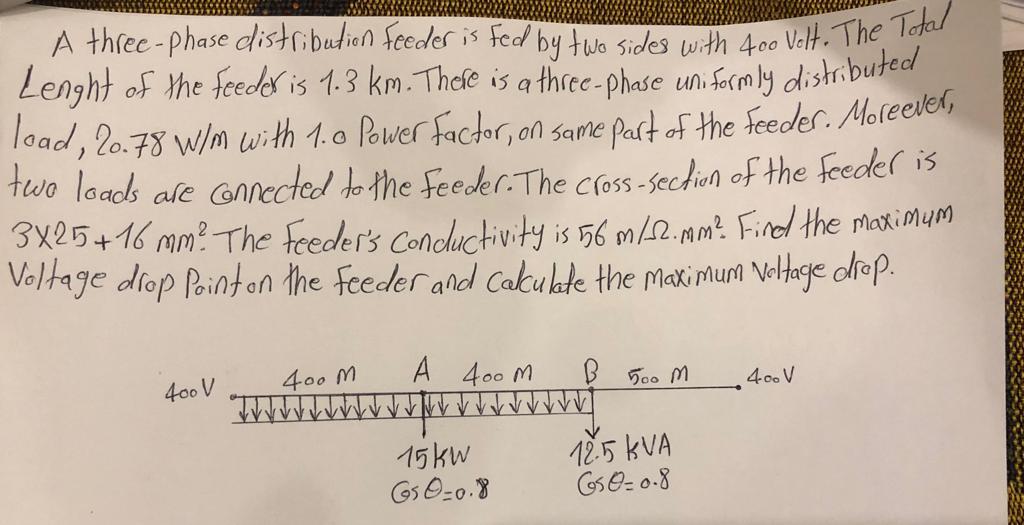 A three-phase distribution feeder is fed by two sides with 400 Volt. The Total
Lenght of the feeder is 1.3 km. There is a three-phase uniformly distributed
load, 20.78 W/m with 1.0 Power factor, on same part of the feeder. Moreever,
two loads are connected to the feeder. The cross-section of the feeder is
3x25+16 mm². The feeder's conductivity is 56 m/Ω.mm². Find the maximum
Voltage drop Point on the feeder and Calculate the maximum Voltage drop.
400V 400 M A 400 M B 500 M 400V
15 kW 12.5 kVA
Cos θ=0.8 Cos θ=0.8